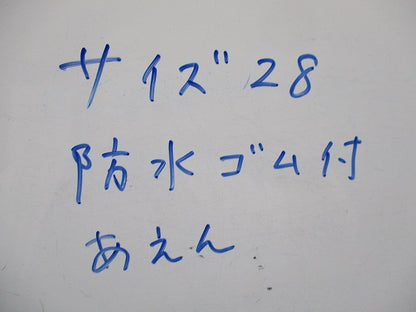 サイズ28
防水ゴム付
あえん